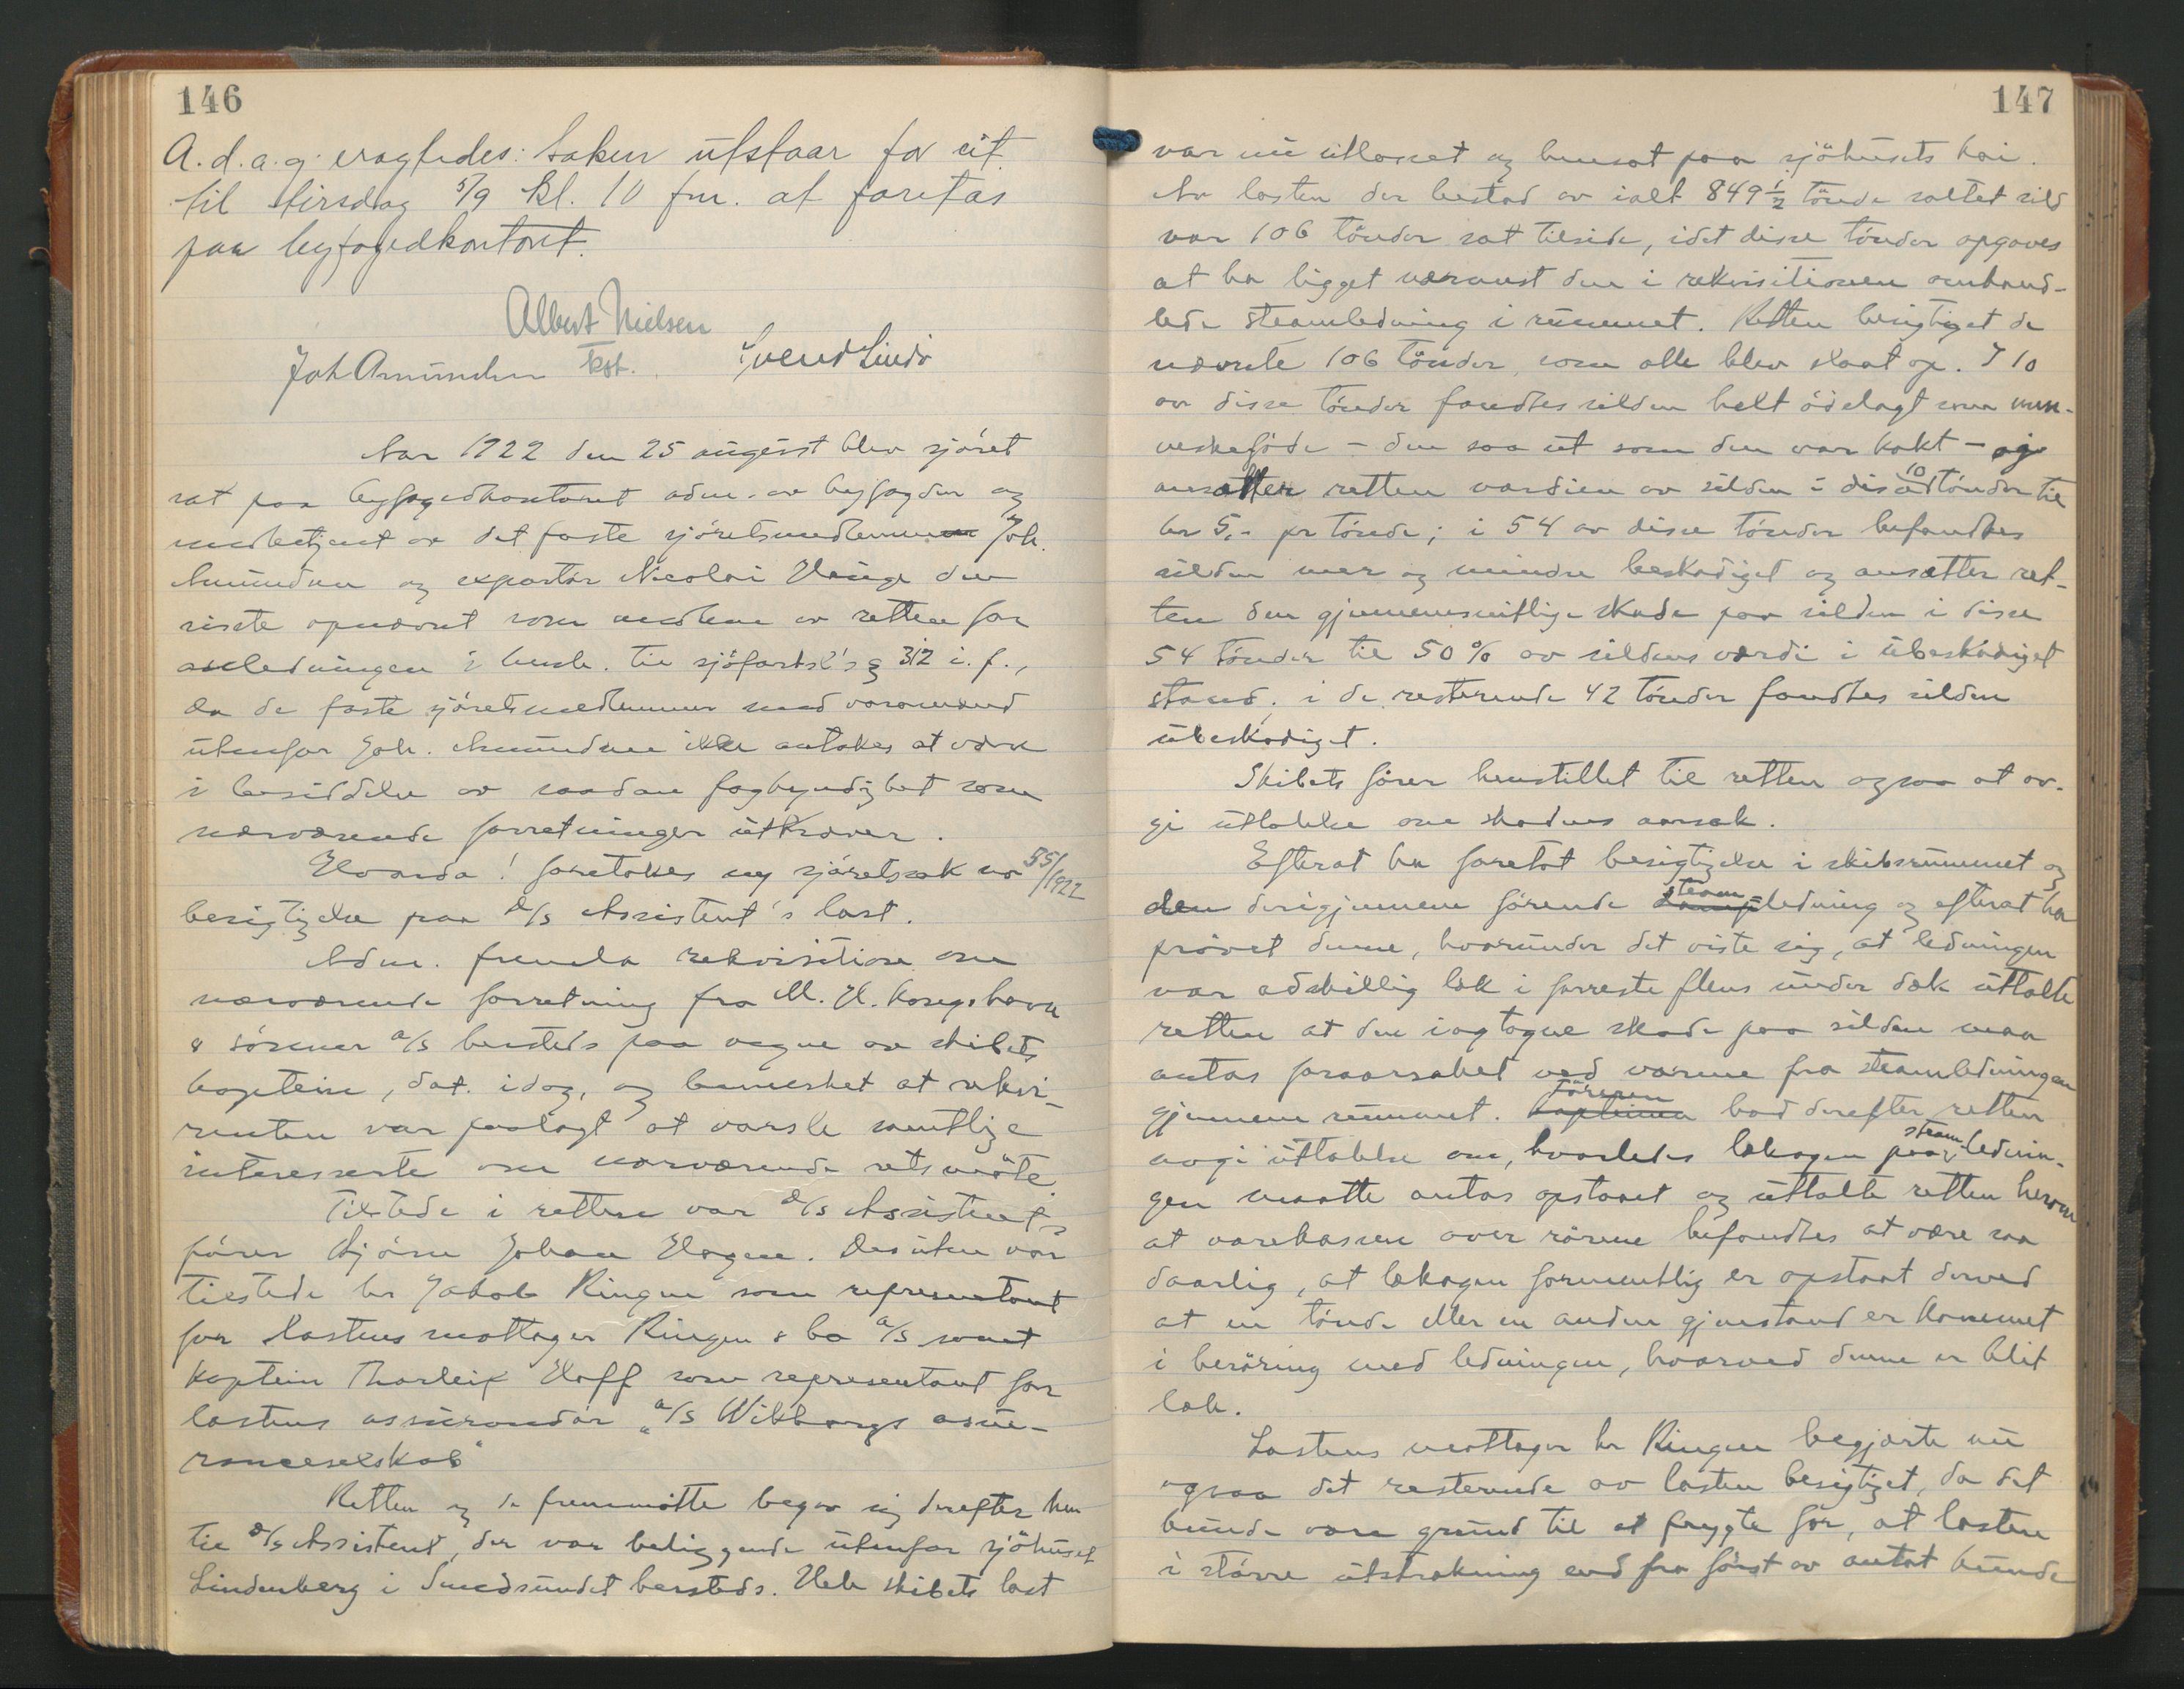 146
A. d. a. g. eragtedes: Saken utstaar for sit
til tirsdag 5/9 kl. 10 fm. at foretas
paa byfogedkontoret.
Albert Nielsen
Joh Amundsen kst. Svend Lindö
Aar 1922 den 25 august blev sjöret
sat paa byfogedkontoret adm. av byfogden og
medbetjent av det faste sjöretsmedlem Joh.
Amundsen og exportör Nicolai Dauge den
siste opnævnt som medlem av retten for
anledningen i henh. til sjöfartsl's § 312 i. f.,
da de faste sjöretsmedlemmer med varamænd
utenfor Joh. Amundsen ikke antokes at være
i besiddelse av saadan fagkyndighet som
nærværende forretninger utkræver.
Hvorda! foretokes ny sjöretssak no 55/1922
besigtigelse paa D/S Assistent's last.
Adm. fremla rekvisition om
nærværende forretning fra M. H. Kongshavn
& Sönner A/S hersteds paa vegne av skibets
kaptein, dat. idag, og bemerket at rekvi-
renten var paalagt at varsle samtlige
interesserte om nærværende retsmöte.
Tilstede i retten var D/S Assistent's
förer Björn Johan Hagen. Desuten var
tilstede hr Jakob Ringen som representant
for lastens mottager Ringen & Co A/S samt
kaptein Thorleif Hoff som representant for
lastens assurandör "A/S Wikborgs assu-
ranceselskab"
Retten og de fremmötte begav sig derefter hen
til D/S Assistent, der var beliggende utenfor sjöhuset
Lindenberg i Smedsundet hersteds. Hele skibets last
147
var nu utlosset og hensat paa sjöhusets kai.
Av lasten der bestod av ialt 849 1/2 tönde saltet sild
var 106 tönder sat tilside, idet disse tönder opgaves
at ha ligget nærmest den i rekvisitionen omhand-
lede steamledning i rummet. Retten besigtiget de
nævnte 106 tönder, som alle blev slaat op. I 10
av disse tönder fandtes silden helt ödelagt som men-
neskeföde - den saa ut som den var kokt - og
ansætter retten værdien av silden i disse 10 tönder til
kr 5,- pr tönde; i 54 av disse tönder befandtes
silden mer og mindre beskadiget og ansætter ret-
ten den gjennemsnitlige skade paa silden i disse
54 tönder til 50 % av sildens værdi i ubeskadiget
stand; i de resterende 42 tönder fandtes silden
ubeskadiget.
Skibets förer henstillet til retten ogsaa at av-
gi uttalelse om skadens aarsak.
Efterat ha foretat besigtigelse i skibsrummet og
den derigjennem förende steamledning og efterat ha
prövet denne, hvorunder det viste sig, at ledningen
var adskillig læk i forreste flens under dæk uttalte
retten at den iagtagne skade paa silden maa
antas foraarsaket ved varme fra steamledningen
gjennem rummet. kapteinen Föreren bad derefter retten
avgi uttalelse om, hvorledes lækagen paa steamlednin-
gen maatte antas opstaaet og uttalte retten herom
at varekassen over rörene befandtes at være saa
daarlig, at lækagen formentlig er opstaat derved
at en tönde eller en anden gjenstand er kommet
i beröring med ledningen, hvorved denne er blit
læk.
Lastens mottager hr Ringen begjærte nu
ogsaa det resterende av lasten besigtiget, da det
kunde være grund til at frygte for, at lasten
i större utstrækning end fra först av antat kunde